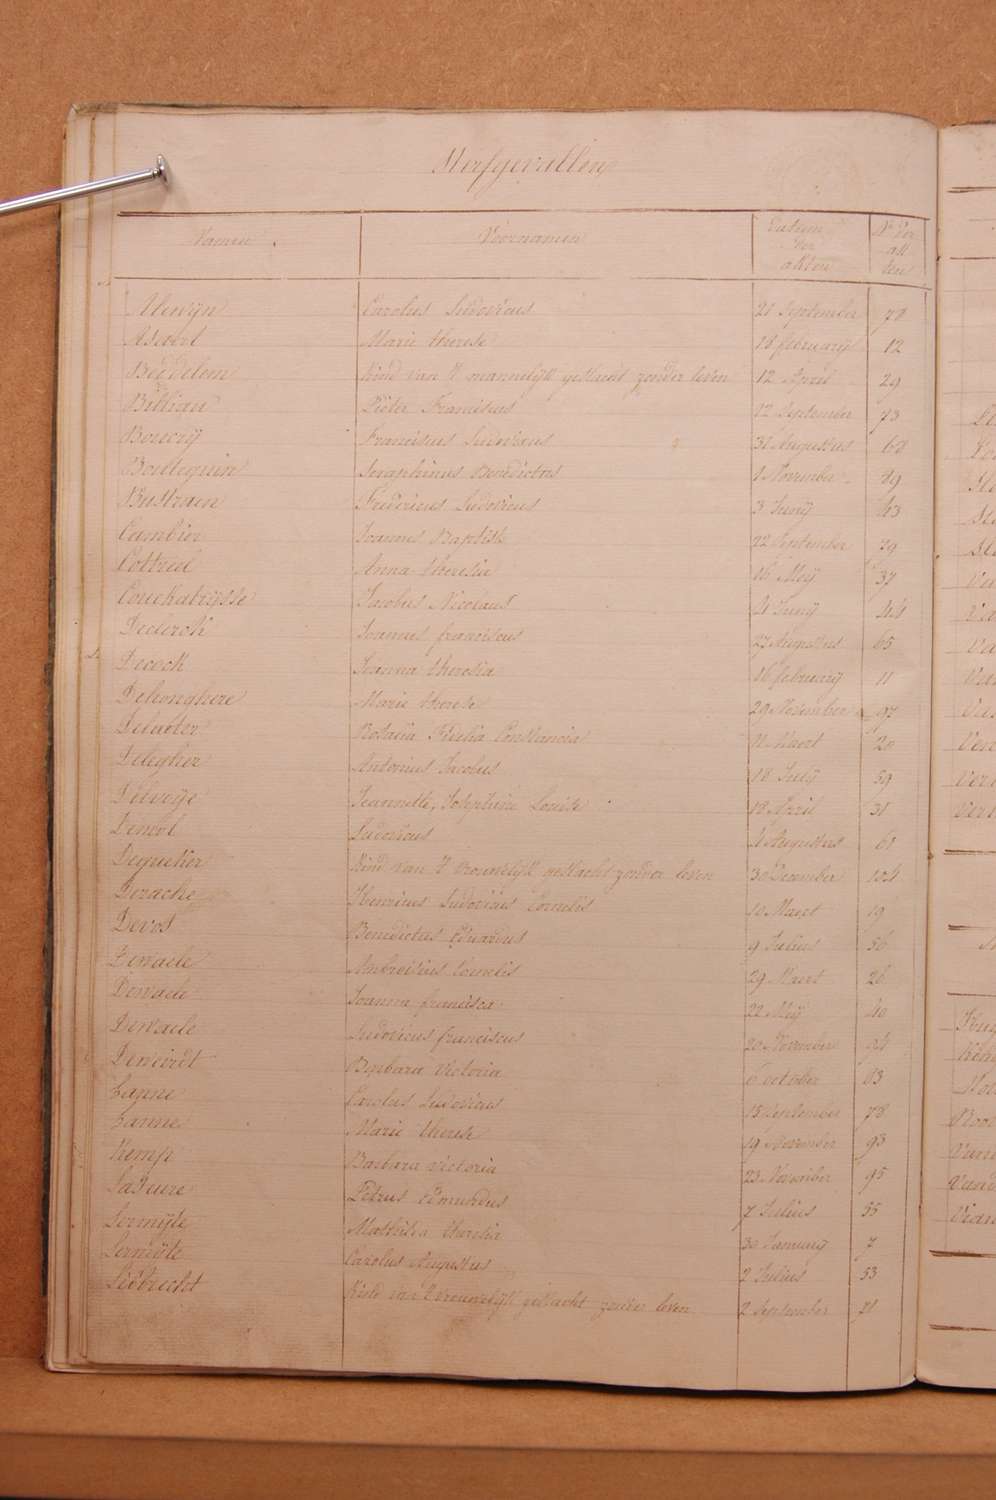 Sterfgevallen
Namen Voornamen Datum der akten Nr der akten
Alewijn Carolus Ludovicus 21 September 78
Asseert Marie therese 18 february 12
Beddelem Kind van 't mannelijk geslacht zonder leven 12 April 29
Billiau Pieter Franciscus 12 September 73
Beuccrij Franciscus Ludovicus 31 Augustus 68
Boulequin Seraphinus Benedictus 1 November 89
Bustraen Fredericus Ludovicus 3 Junij 43
Cambier Joannes Baptiste 22 September 79
Cottreel Anna theresia 16 Meij 37
Couchatrijsse Jacobus Nicolaus 4 Junij 44
Declerck Joannes franciscus 27 Augustus 65
Decock Joanna theresia 16 february 11
Dehonghere Marie therese 29 November 97
Delacter Rosalia Fidelia Constancia 11 Maert 20
Delegher Antonius Jacobus 18 July 59
Delveije Jeannette, Josephine Louise 18 April 31
Denval Ludovicus 4 Augustus 61
Dequeker Kind van 't vrouwelijk geslacht zonder leven 30 December 104
Derache Henricus Ludovicus Cornelis 10 Maert 19
Devos Benedictus Eduardus 9 Julius 56
Dewaele Ambrosius Cornelis 29 Maert 26
Dewaele Joanna francisca 22 Meij 40
Dewaele Ludovicus franciscus 20 November 94
Deweirdt Barbara Victoria 6 october 83
Hanne Carolus Ludovicus 15 September 78
Hanne Marie therese 19 November 93
Kemp Barbara victoria 23 November 95
Ladeure Petrus Edmundus 7 Julius 55
Lermijte Mathilda theresia 30 January 7
Lermijte Carolus Augustus 2 Julius 53
Liebrecht Kind van 't vrouwelijk geslacht zonder leven 2 September 71